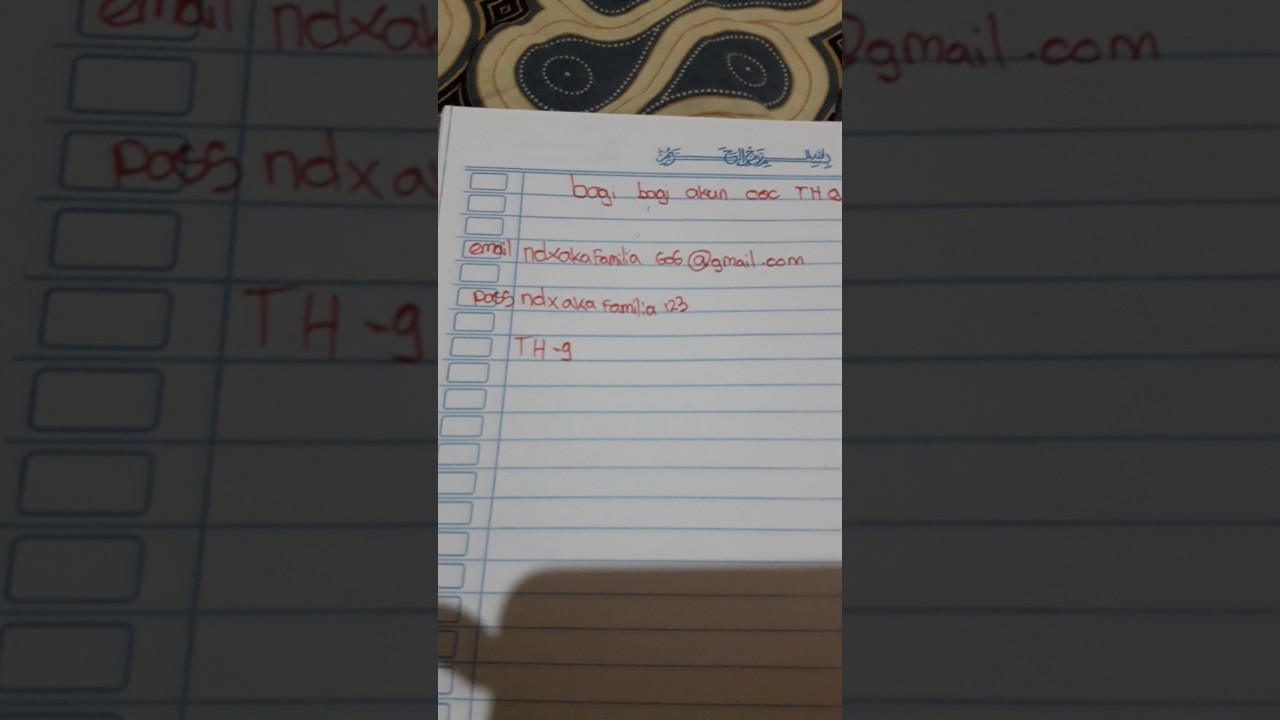 بسم الله الرحمن الرحيم
bagi bagi akun coc TH 9
email ndxakafamilia 606@gmail.com
pass ndxakafamilia 123
TH-9